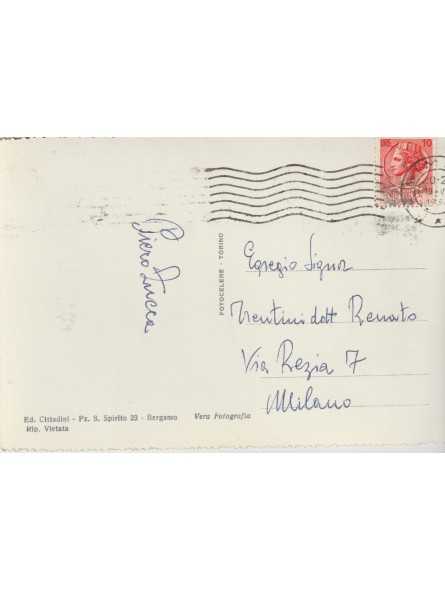 10
Piero Lucca
FOTOCELERE - TORINO
Egregio Signor
Trentini dott Renato
Via Rezia 7
Milano
Ed. Cittadini - Pz. S. Spirito 23 - Bergamo
Vera Fotografia
Rip. Vietata